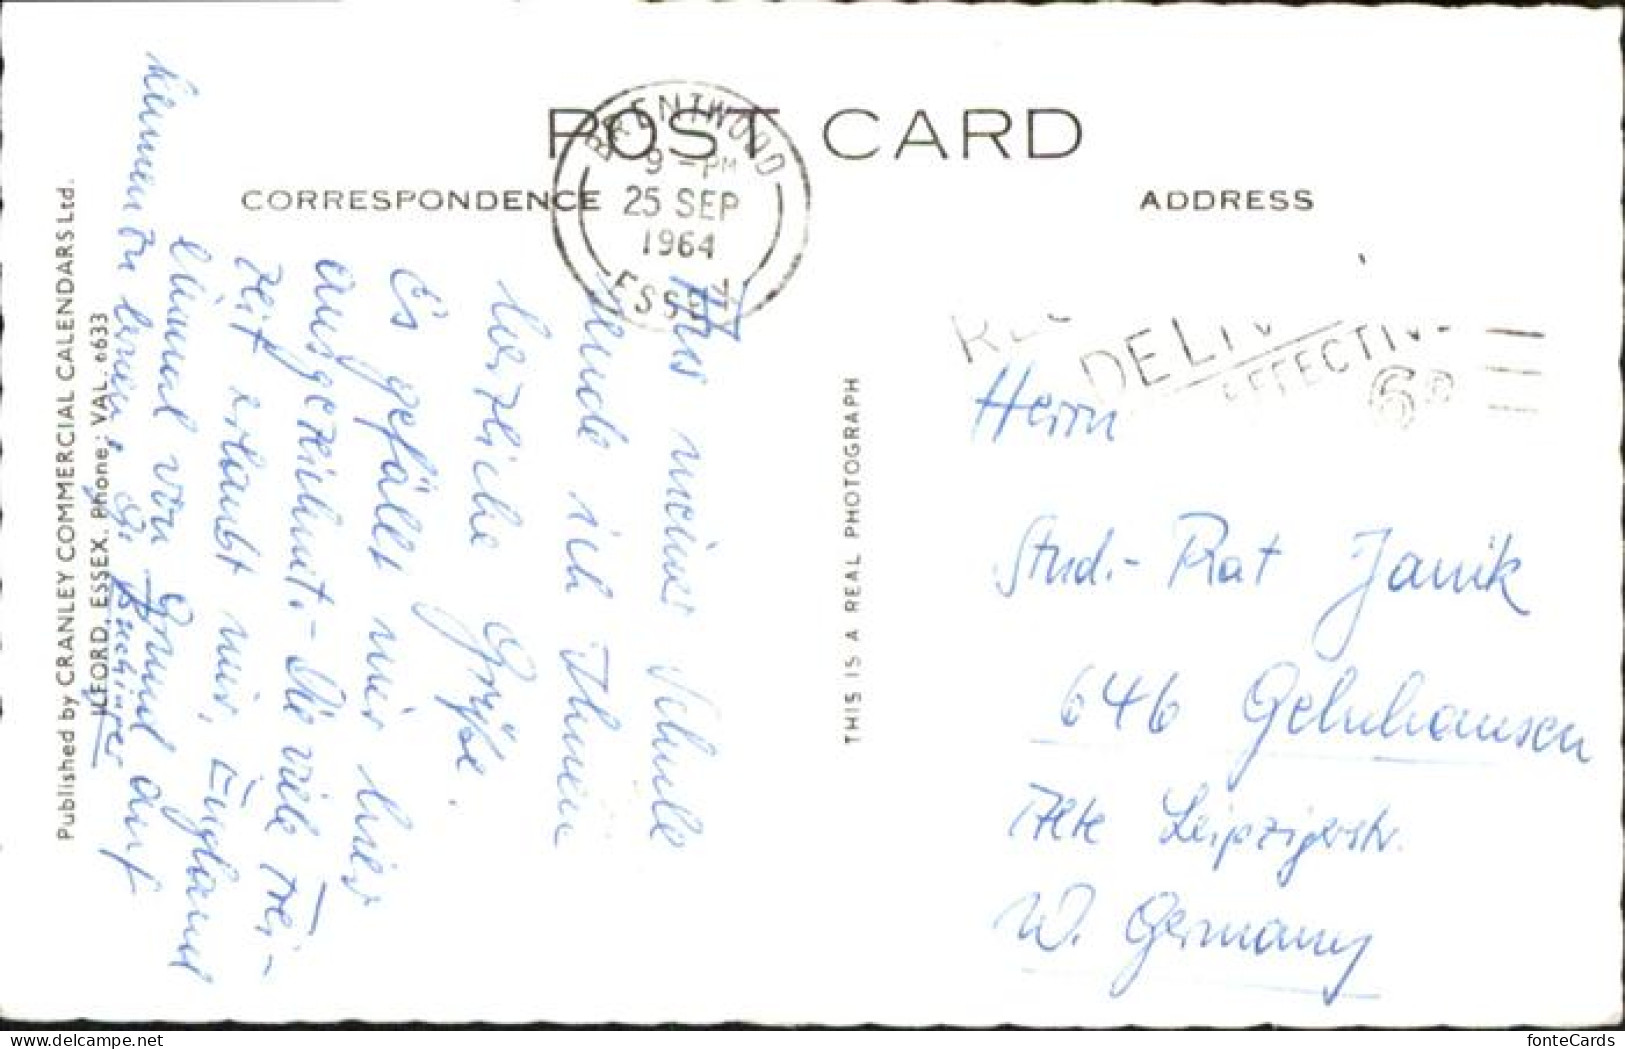 POST CARD
CORRESPONDENCE
ADDRESS
BRENTWOOD
9 - PM
25 SEP
1964
ESSEX
Aus meiner Schule
sende ich Ihnen
herzliche Grüße.
Es gefällt mir hier
ausgezeichnet. - Die viele Frei-
zeit erlaubt mir, England
einmal von Grund auf
kennen zu lernen.
Published by CRANLEY COMMERCIAL CALENDARS Ltd.
ILFORD, ESSEX. Phone: VAL. 6633
THIS IS A REAL PHOTOGRAPH
Herrn
Stud.-Rat Janik
646 Gelnhausen
Alte Leipzigerstr.
W. Germany
www.delcampe.net
fonteCards